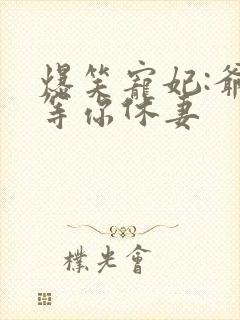 爆笑寵妃:爺
等你休妻
樸光會